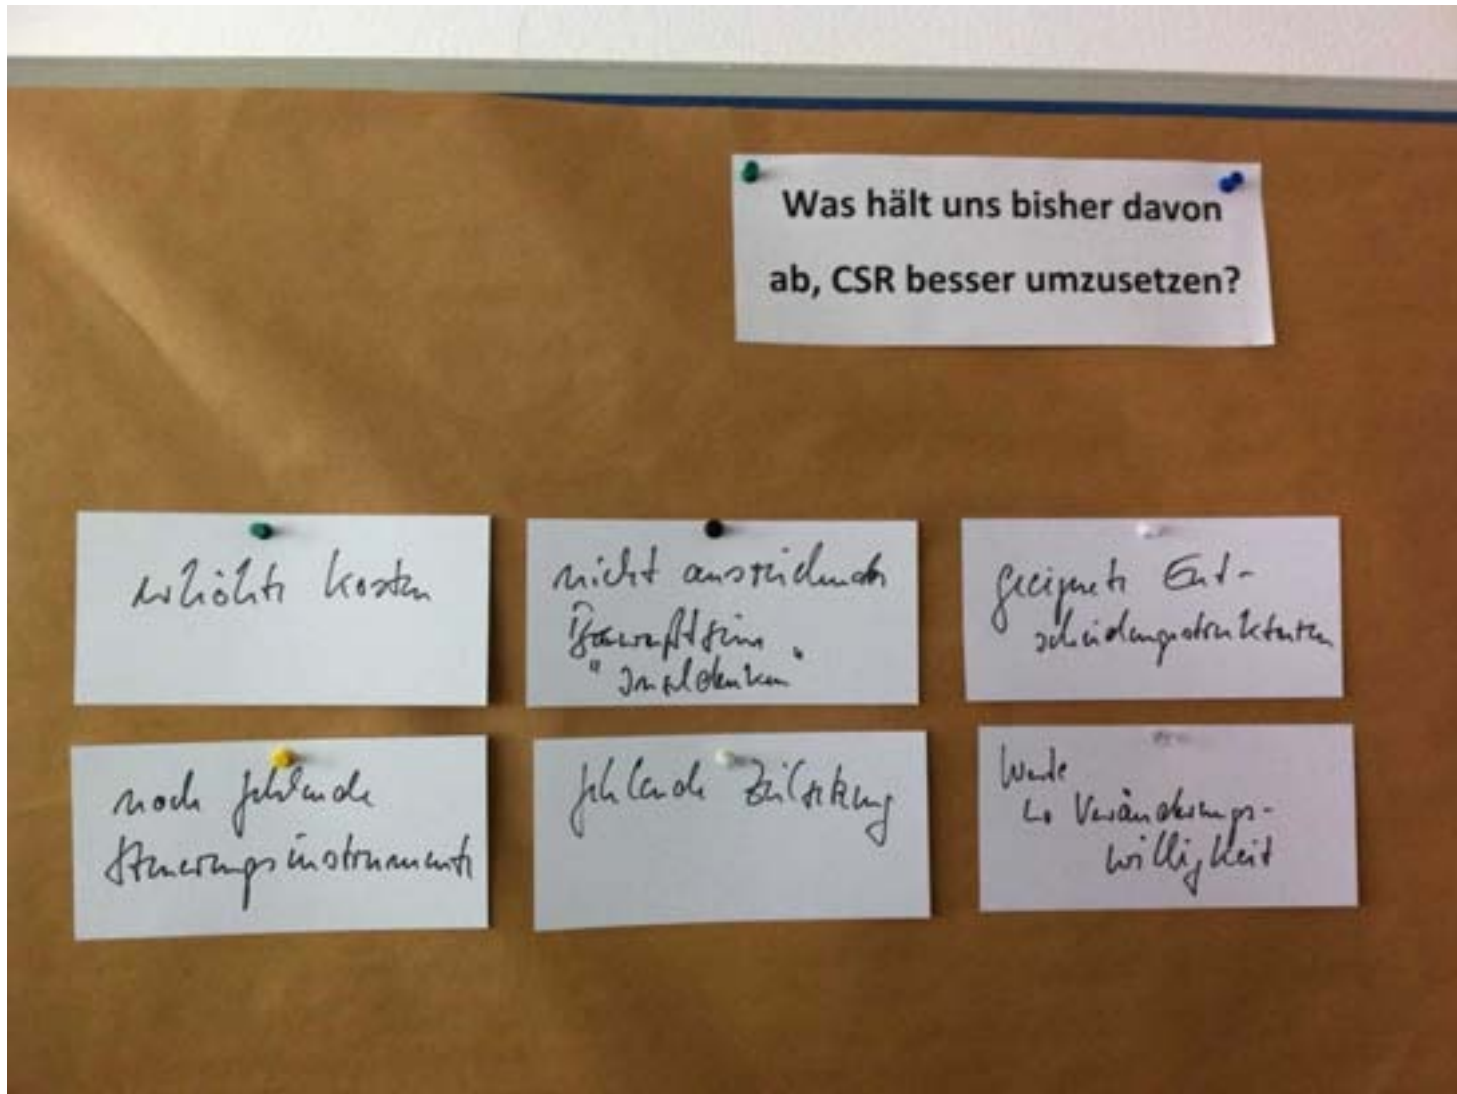 Was hält uns bisher davon
ab, CSR besser umzusetzen?
erhöhte Kosten
nicht ausreichendes
Bewußtsein
"Inseldenken"
geeignete Ent-
scheidungsstrukturen
noch fehlende
Steuerungsinstrumente
fehlende Zielsetzung
Werte
↳ Veränderungs-
willigkeit